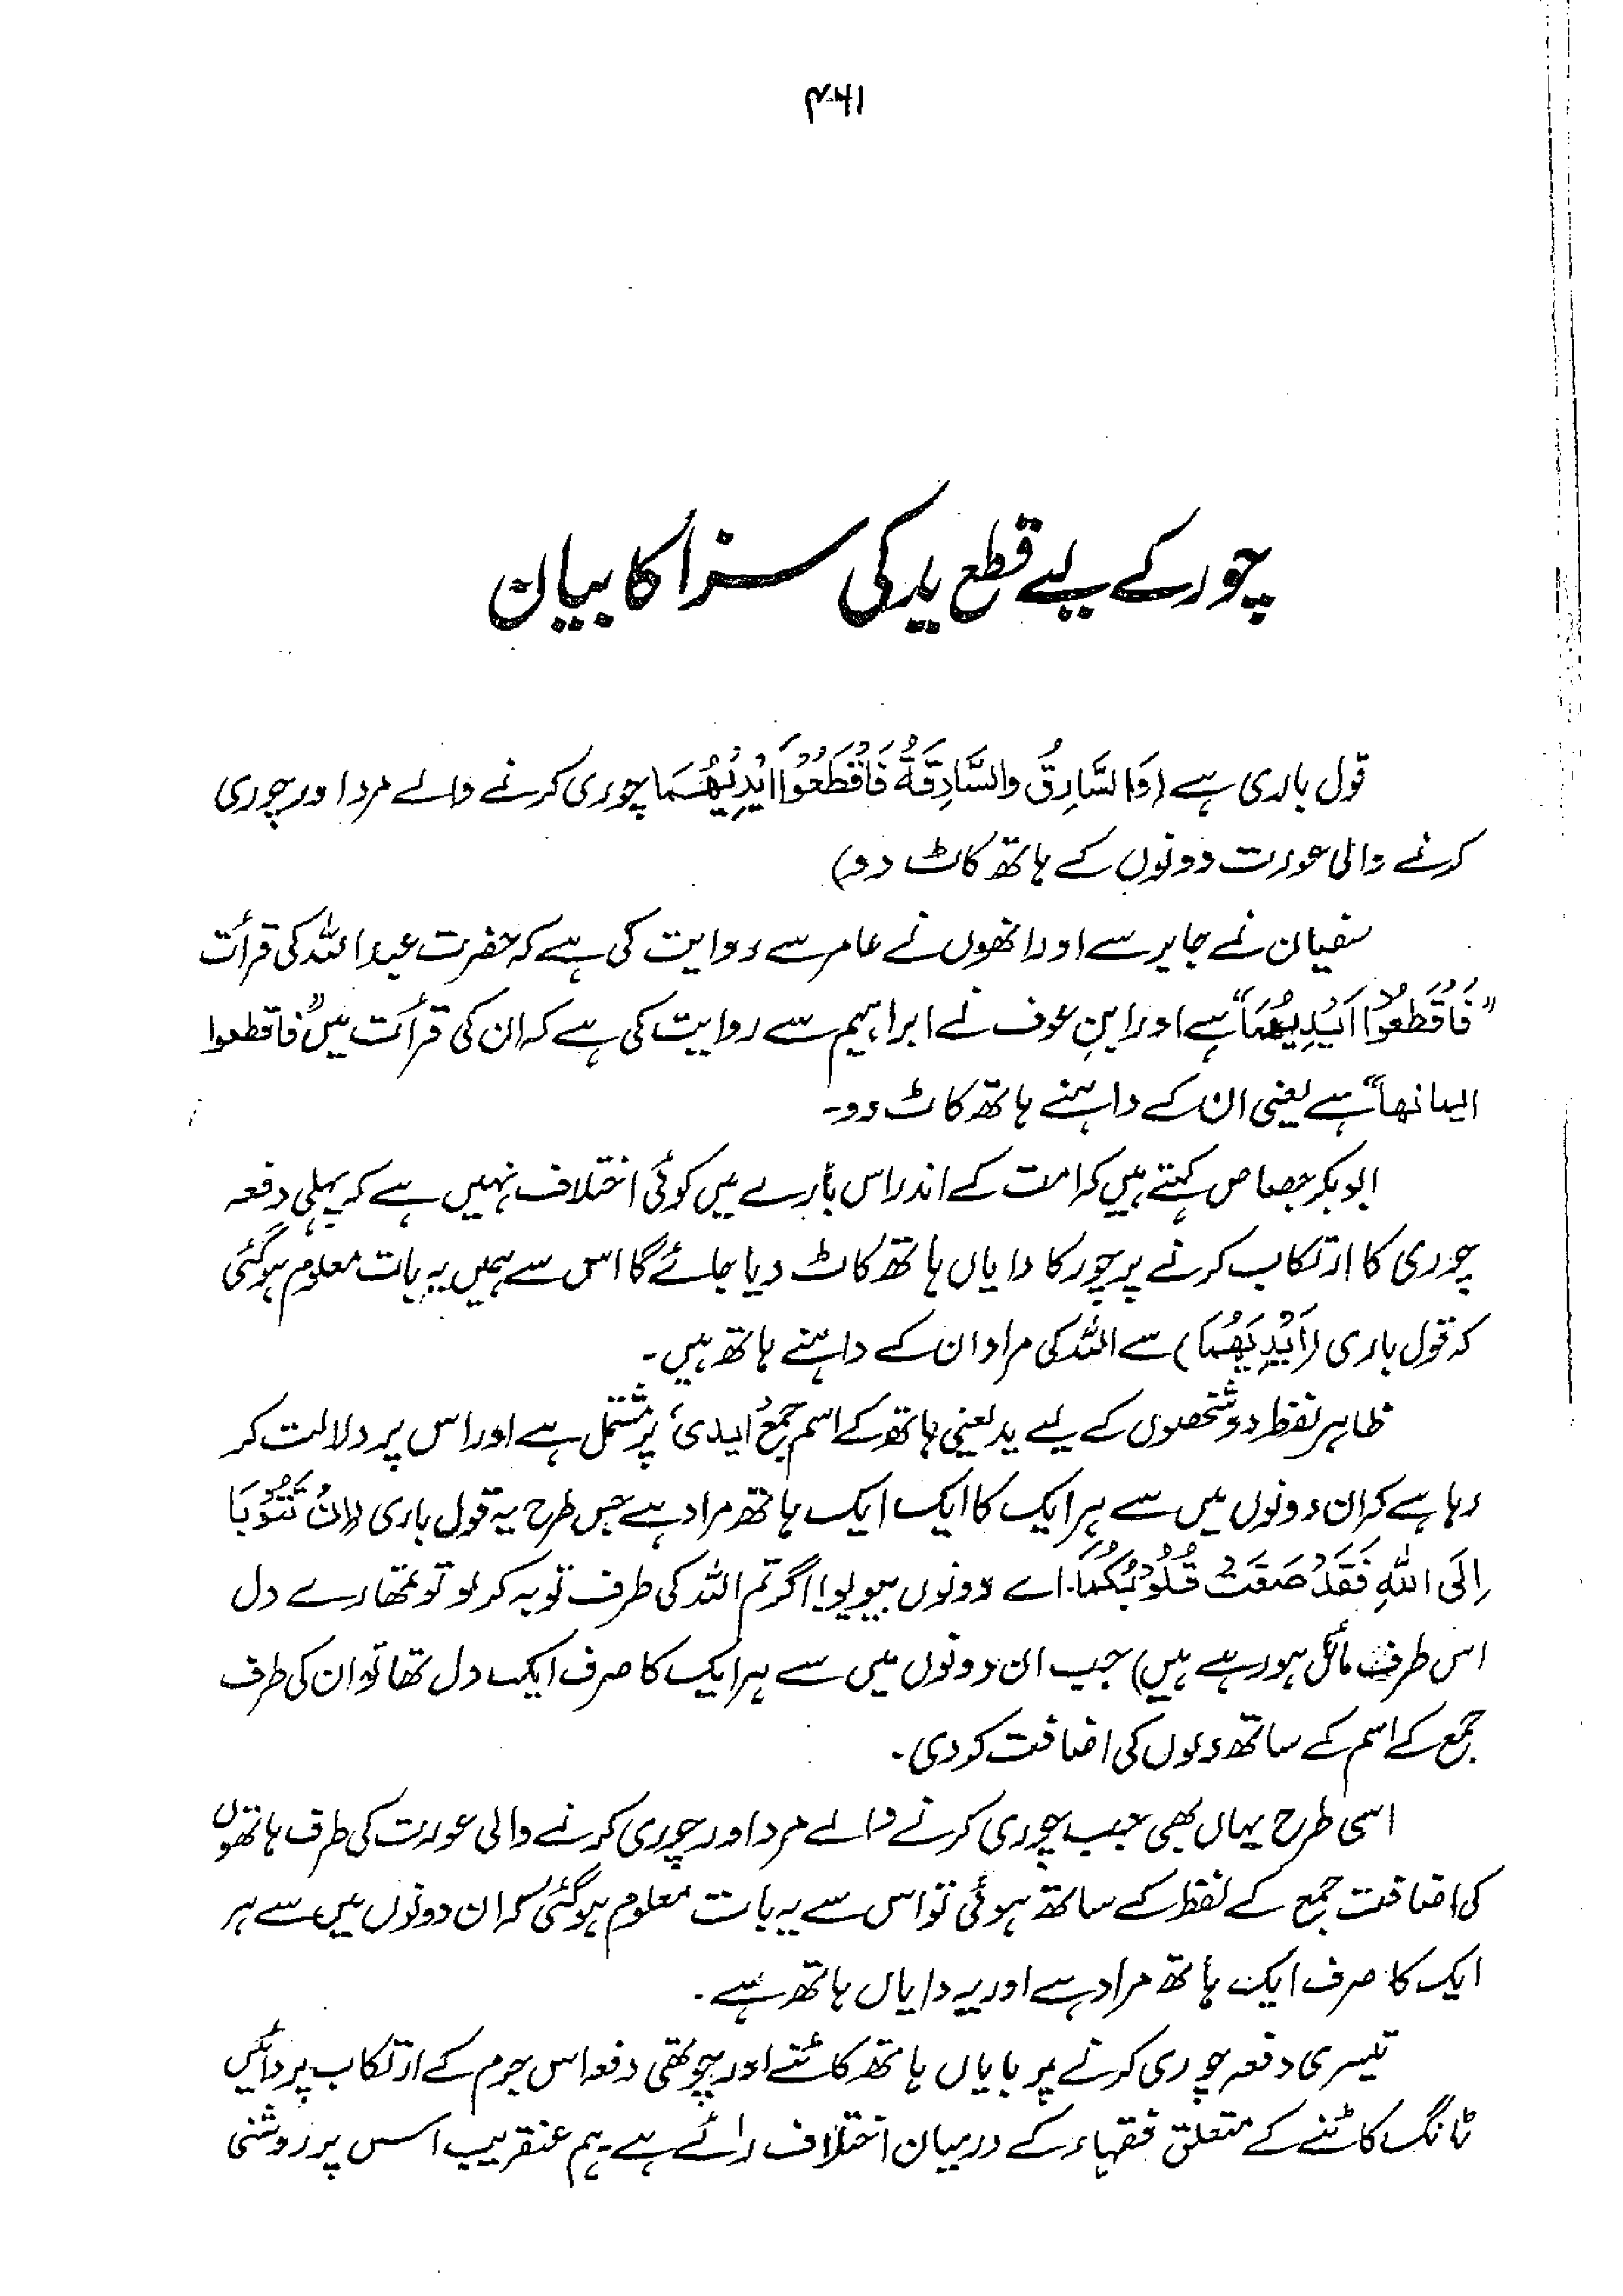 ۴۶۱
چور کے لیے قطع ید کی سزا کا بیان
قول باری ہے (وَالسَّارِقُ وَالسَّارِقَةُ فَاقْطَعُوْا اَيْدِيَهُمَا چوری کرنے والے مرد اور چوری
کرنے والی عورت دونوں کے ہاتھ کاٹ دو)
سفیان نے جابر سے اور انھوں نے عامر سے روایت کی ہے کہ حضرت عبداللہ کی قرأت
"فَاقْطَعُوْا اَيْدِيَهُمَا" ہے اور ابن عوف نے ابراہیم سے روایت کی ہے کہ ان کی قرأت میں "فاقطعوا
ایمانھما" ہے یعنی ان کے داہنے ہاتھ کاٹ دو۔
ابوبکر جصاص کہتے ہیں کہ امت کے اندر اس بارے میں کوئی اختلاف نہیں ہے کہ پہلی دفعہ
چوری کا ارتکاب کرنے پر چور کا دایاں ہاتھ کاٹ دیا جائے گا اس سے ہمیں یہ بات معلوم ہوگئی
کہ قول باری (اَيْدِيَهُمَا) سے اللہ کی مراد ان کے داہنے ہاتھ ہیں۔
ظاہر لفظ دو شخصوں کے لیے ید یعنی ہاتھ کے اسم جمع 'ایدی' پر مشتمل ہے اور اس پر دلالت کر
رہا ہے کہ ان دونوں میں سے ہر ایک کا ایک ایک ہاتھ مراد ہے جس طرح یہ قول باری (اِنْ تَتُوْبَا
اِلَى اللهِ فَقَدْ صَغَتْ قُلُوْبُكُمَا۔ اے دونوں بیویو! اگر تم اللہ کی طرف توبہ کر لو تو تمھارے دل
اس طرف مائل ہو رہے ہیں) جب ان دونوں میں سے ہر ایک کا صرف ایک دل تھا تو ان کی طرف
جمع کے اسم کے ساتھ دلوں کی اضافت کر دی۔
اسی طرح یہاں بھی جب چوری کرنے والے مرد اور چوری کرنے والی عورت کی طرف ہاتھوں
کی اضافت جمع کے لفظ کے ساتھ ہوئی تو اس سے یہ بات معلوم ہوگئی کہ ان دونوں میں سے ہر
ایک کا صرف ایک ہاتھ مراد ہے اور یہ دایاں ہاتھ ہے۔
تیسری دفعہ چوری کرنے پر بایاں ہاتھ کاٹنے اور چوتھی دفعہ اس جرم کے ارتکاب پر دائیں
ٹانگ کاٹنے کے متعلق فقہاء کے درمیان اختلاف رائے ہے۔ ہم عنقریب اس پر روشنی